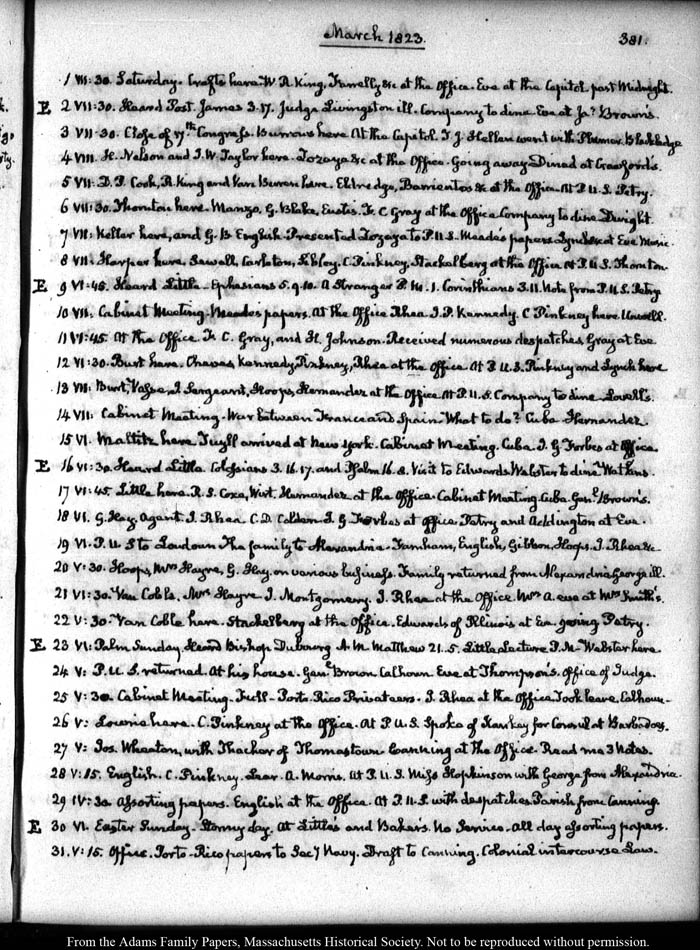 March 1823.
381.
1 VII:30. Saturday. Crafts here. W. R. King, Farrelly &c at the Office. Eve at the Capitol past Midnight.
E 2 VII:30. Heard Post. James 3.17. Judge Livingston ill. Company to dine Eve at Ja.s Brown's.
3 VII:30. Close of 17th Congress. Burrows here At the Capitol. T. J. Hellen went with Plumer.
4 VIII. H. Nelson and J. W. Taylor here. Tozaya &c at the Office. Going away Dined at Crawford's.
5 VII: D. P. Cook, R. King and Van Buren here. Eldredge, Barrientos &c at the Office. At P. U. S. Petry.
6 VII:30. Thornton here. Manzo, G. Blake, Eustis. F. C. Gray at the Office. Company to dine. Dwight.
7 VII: Keller here, and G. B. English. Presented Tozaya to P. U. S. Meade's papers. Lynch &c at Eve Music.
8 VII: Harper here. Sewall, Carlston, Sibley. C. Pinkney, Stackelberg at the Office At P. U. S. Thornton
E 9 VI:45. Heard Little. Ephesians 5.9.10. A Stranger P. M. 1. Corinthians 3.11. Note from P. U. S. Petry
10 VII. Cabinet Meeting. Meade's papers. At the Office Rhea. J. P. Kennedy. C Pinkney here. Unwell.
11 VI:45. At the Office. F. C. Gray, and H. Johnson. Received numerous despatches. Gray at Eve
12 VI:30. Burt here. Chaves, Kennedy, Pinkney, Rhea at the Office. At P. U. S. Pinkney and Lynch here
13 VII: Burt, J. Sergeant, Hoops, Hernandez at the Office At P. U. S. Company to dine. Lovell's.
14 VII: Cabinet Meeting. War between France and Spain. What to do? Cuba Hernandez
15 VI. Maltitz here Tuyll arrived at New York. Cabinet Meeting. Cuba. J. G. Forbes at Office.
E 16 VI:30. Heard Little. Colossians 3.16.17. and Psalm 16.8. Visit to Edwards. Webster to dine. Watkins.
17 VI:45. Little here. R. S. Coxe, Wirt. Hernandez at the Office Cabinet Meeting Cuba. Gen.l Brown's.
18 VI. G. Hay, Agent. J. Rhea. C. D. Colden. J. G Forbes at Office. Petry and Addington at Eve.
19 VI. P. U. S to Loudoun The family to Alexandria. Farnham, English, Gibbon, Hoops. J. Rhea &c
20 V:30. Hoops, Mrs Hayne, G. Hay, on various business. Family returned from Alexandria George ill.
21 VI:30. Van Coble. Mrs Hayne. J. Montgomery. J. Rhea at the Office. Mrs A. eve at Mrs Smith's.
22 V:30. Van Coble here. Stackelberg at the Office. Edwards of Illinois at Eve. going Petry.
E 23 VI: Palm Sunday. Heard Bishop Dubourg A. M. Matthew 21.5. Little Lecture P. M. Webster here
24 V: P. U. S. returned. At his house. Gen.l Brown Calhoun. Eve at Thompson's. Office of Judge.
25 V:30. Cabinet Meeting. Full. Porto Rico Privateers. J. Rhea at the Office Took leave. Calhoun
26 V: Lowrie here. C. Pinkney at the Office. At P. U. S. Spoke of Harkey for Consul at Barbadoes.
27 V: Jos. Wheaton, with Thacher of Thomastown. Canning at the Office. Read me 3 Notes.
28 V:15. English. C. Pinkney. Lear. A. Morris. At P. U. S. Miss Hopkinson with George from Alexandria.
29 IV:30 Assorting papers. English at the Office. At P. U. S. with despatches. Parish from Canning.
E 30 VI. Easter Sunday. Stormy day. At Little's and Baker's. No Service. All day assorting papers.
31. V:15. Office. Porto-Rico papers to Sec.y Navy. Draft to Canning. Colonial intercourse Law.
From the Adams Family Papers, Massachusetts Historical Society. Not to be reproduced without permission.